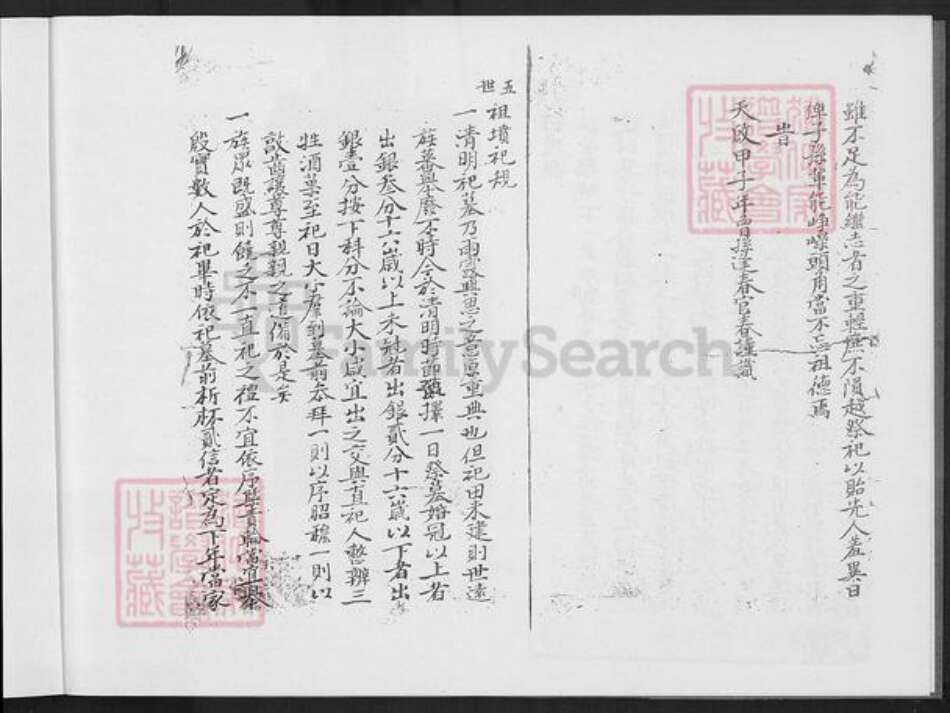 雖不足為能繼志者之重輕庶不隕越祭祀以貽先人羞異日
俾子孫軰能崢嶸頭角當不忘祖德焉
旹
天啟甲子年春官春謹識
五世
祖墳祀規
一清明祀墓乃雨露興思之意重典也但祀田未建則世遠
族蕃舉廢不時今於清明時節擇一日祭墓婚冠以上者
出銀叁分十六歲以上未冠者出銀貳分十六歲以下者出
銀壹分按下科分不論大小咸宜出之交與直祀人整辦三
牲酒菓至祀日大小羣到墓前恭拜一則以序昭穆一則以
敘齒讓尊尊親親之道備於是矣
一族眾既盛則值祀之禮不宜依序
殷實數人於祀畢時依祀墓前析杯貳信者定為下年當家
FamilySearch